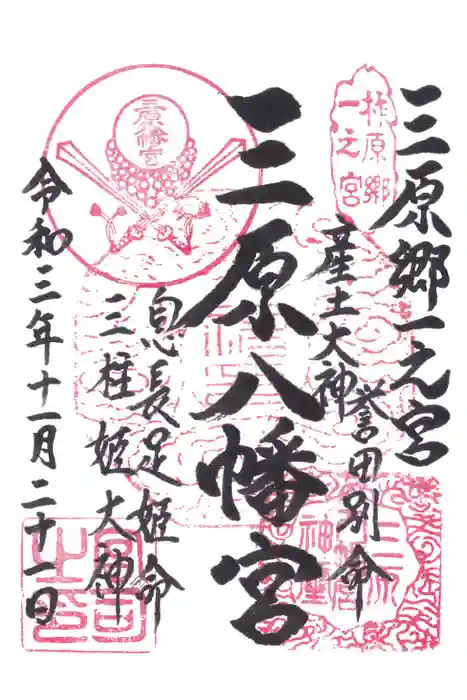 三原郷一之宮
産土大神
誉田別命
三原八幡宮
息長足姫命
三柱姫大神
令和三年十一月二十一日
柱原郷
一之宮
三原八幡宮